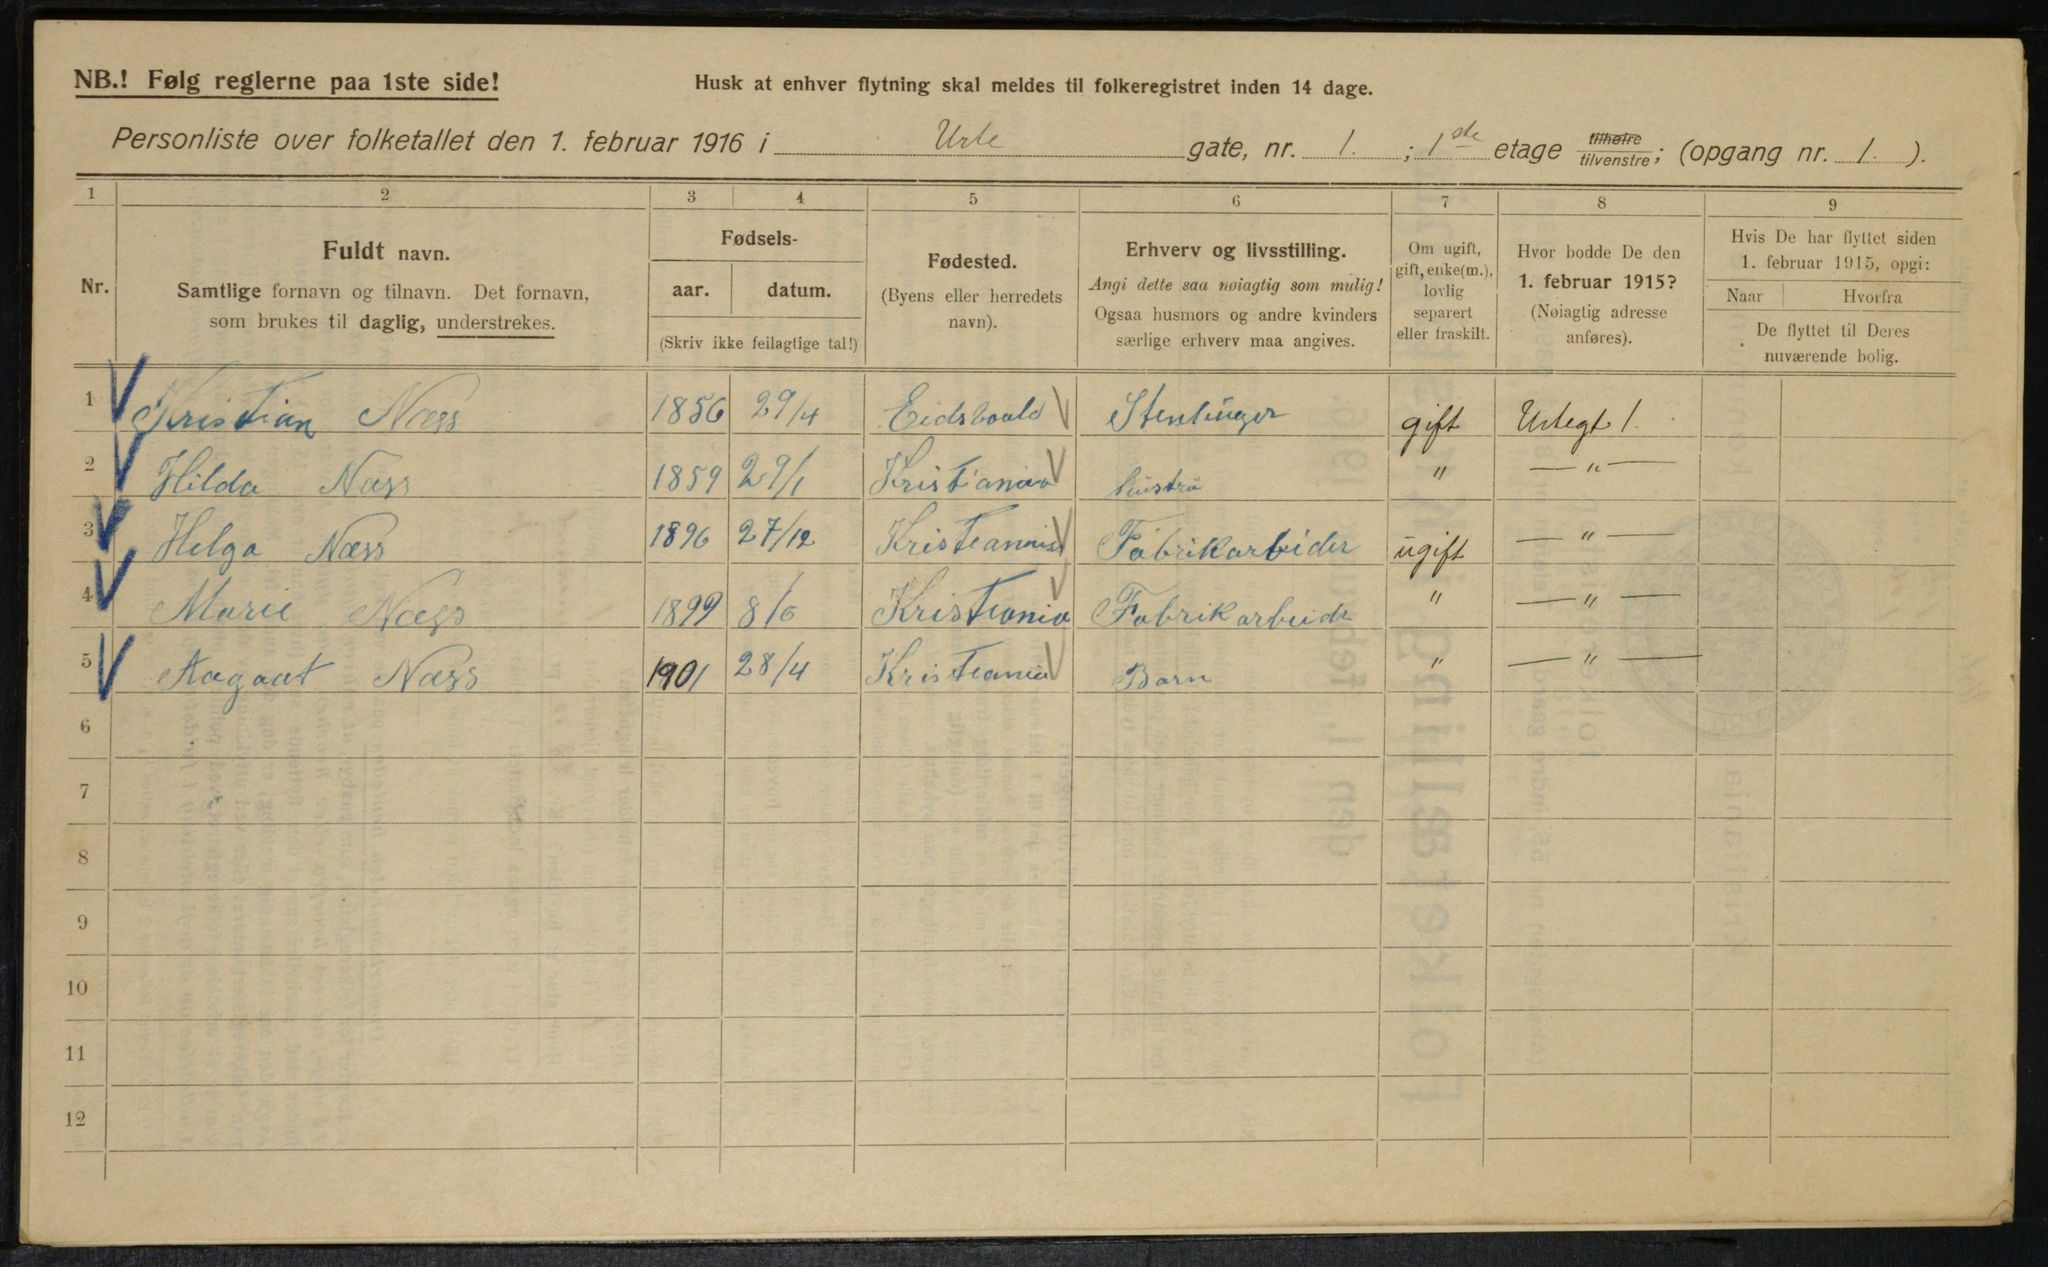 NB.! Følg reglerne paa 1ste side!
Husk at enhver flytning skal meldes til folkeregistret inden 14 dage.
Personliste over folketallet den 1. februar 1916 i Urte gate, nr. 1. ; 1ste etage tilhøire tilvenstre; (opgang nr. 1. ).
1 2 3 4 5 6 7 8 9
Nr.
Fuldt navn.
Samtlige fornavn og tilnavn. Det fornavn,
som brukes til daglig, understrekes.
Fødsels-
aar. datum.
(Skriv ikke feilagtige tal!)
Fødested.
(Byens eller herredets
navn).
Erhverv og livsstilling.
Angi dette saa nøiagtig som mulig!
Ogsaa husmors og andre kvinders
særlige erhverv maa angives.
Om ugift,
gift, enke(m.),
lovlig
separert
eller fraskilt.
Hvor bodde De den
1. februar 1915?
(Nøiagtig adresse
anføres).
Hvis De har flyttet siden
1. februar 1915, opgi:
Naar Hvorfra
De flyttet til Deres
nuværende bolig.
1 Kristian Næss 1856 29/4 Eidsvoald Stenhuger gift Urtegt 1.
2 Hilda Næss 1859 29/1 Kristiania hustru " — " —
3 Helga Næss 1896 27/12 Kristiannia Fabrikarbider ugift — " —
4 Marie Næss 1899 8/6 Kristiania Fabrikarbeidr " — " —
5 Aagaat Næss 1901 28/4 Kristiania Barn " — " —
6
7
8
9
10
11
12